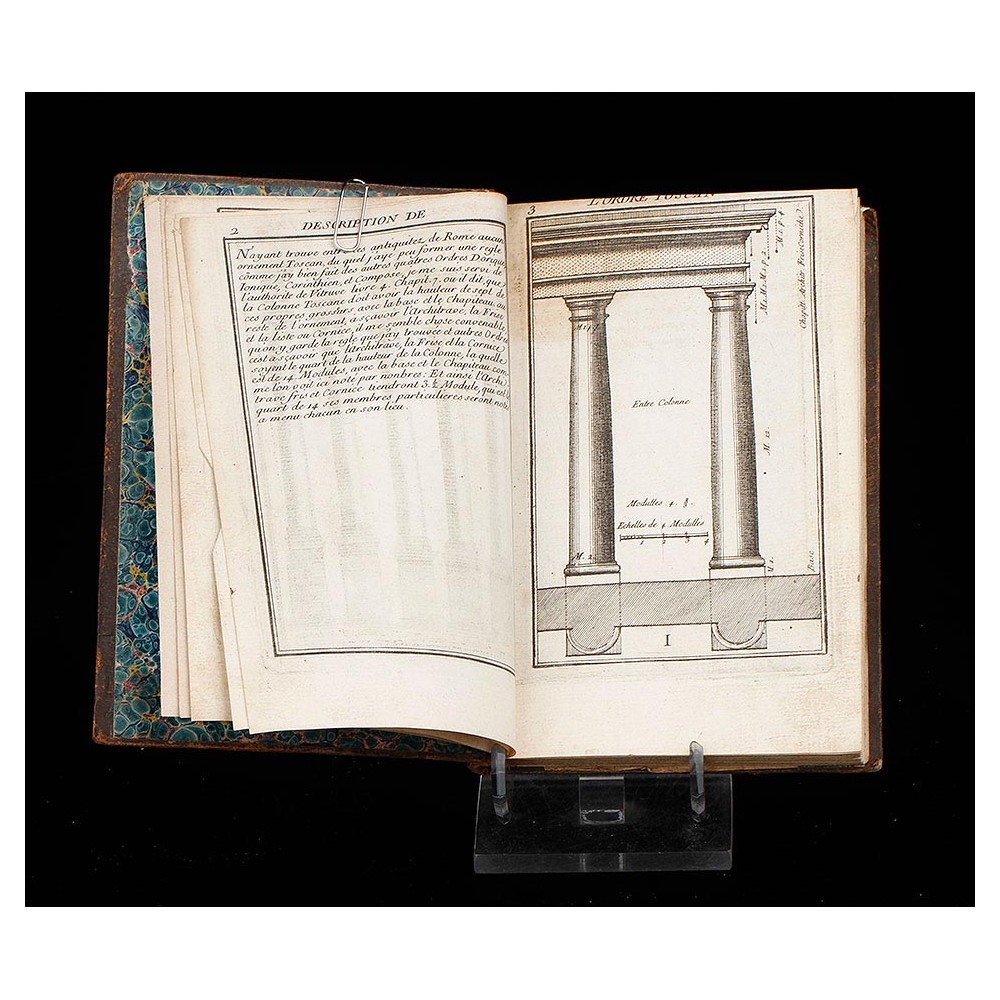 2
DESCRIPTION DE
N'ayant trouve entre les antiquitez de Rome aucun
ornement Toscan, du quel j'aye peu former une regle
cõme j'ay bien fait des autres quatres Ordres Dorique
Ionique, Corinthien, et Compose, je me suis servi de
l'authorite de Vitruve livre 4. Chapit. 7. ou il dit que
la Colonne Toscane doit avoir la hauteur de sept de
ces propres grossurs avec la base et le Chapiteau, au
reste de l'ornement, asçavoir l'Architrave, la Frise
et la liste ou Cornice, il me semble chose convenable
qu'on y garde la regle que j'ay trouvée et autres Ordres
cest asçavoir que l'architrave, la Frise et la Cornice
soyent le quart de la hauteur de la Colonne, la quelle
est de 14 Modules, avec la base et le Chapiteau com
me lon voit ici note par nonbres: Et ainsi l'Archi
trave fris et Cornice tiendront 3.½ Module, qui est le
quart de 14 ses membres particulieres seront note
a menu chacun en son lieu.
3
L'ORDRE TOSCAN
Entre Colonne
M. 12.
Modulles 4.
Echelles de 4. Modulles
1 2 3 4
M. 2
M 1.
Base
Chapitt. Architr. Frise Corniche
I